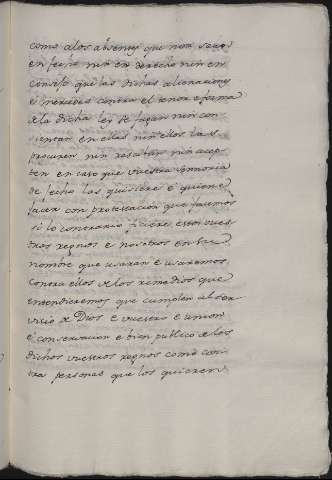 como a los absentes que non sean
en fecho nin en derecho nin en
consejo que las dichas alienaciones
é mercedes contra el tenor e forma
de la dicha ley se fagan nin con-
sientan en ellas nin ellos las
procuren nin resciban nin acep-
ten en caso que vuestra Señoria
de fecho las quisiere é quiera
facer con protestacion que facemos
si lo contrario ficiere estos vues-
tros regnos e nosotros en su
nombre que usaran e usaremos
contra ellos de los remedios que
entendieremos que cumplen al ser-
vicio de Dios e vuestro e union
é conservacion e bien publico de los
dichos vuestros regnos como con-
tra personas que los quieren